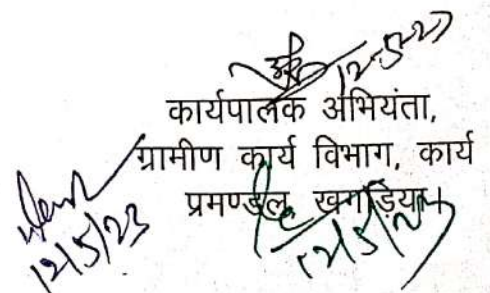 12-5-23
कार्यपालक अभियंता,
ग्रामीण कार्य विभाग, कार्य
प्रमण्डल, खगड़िया।
12/5/23
12/5/23